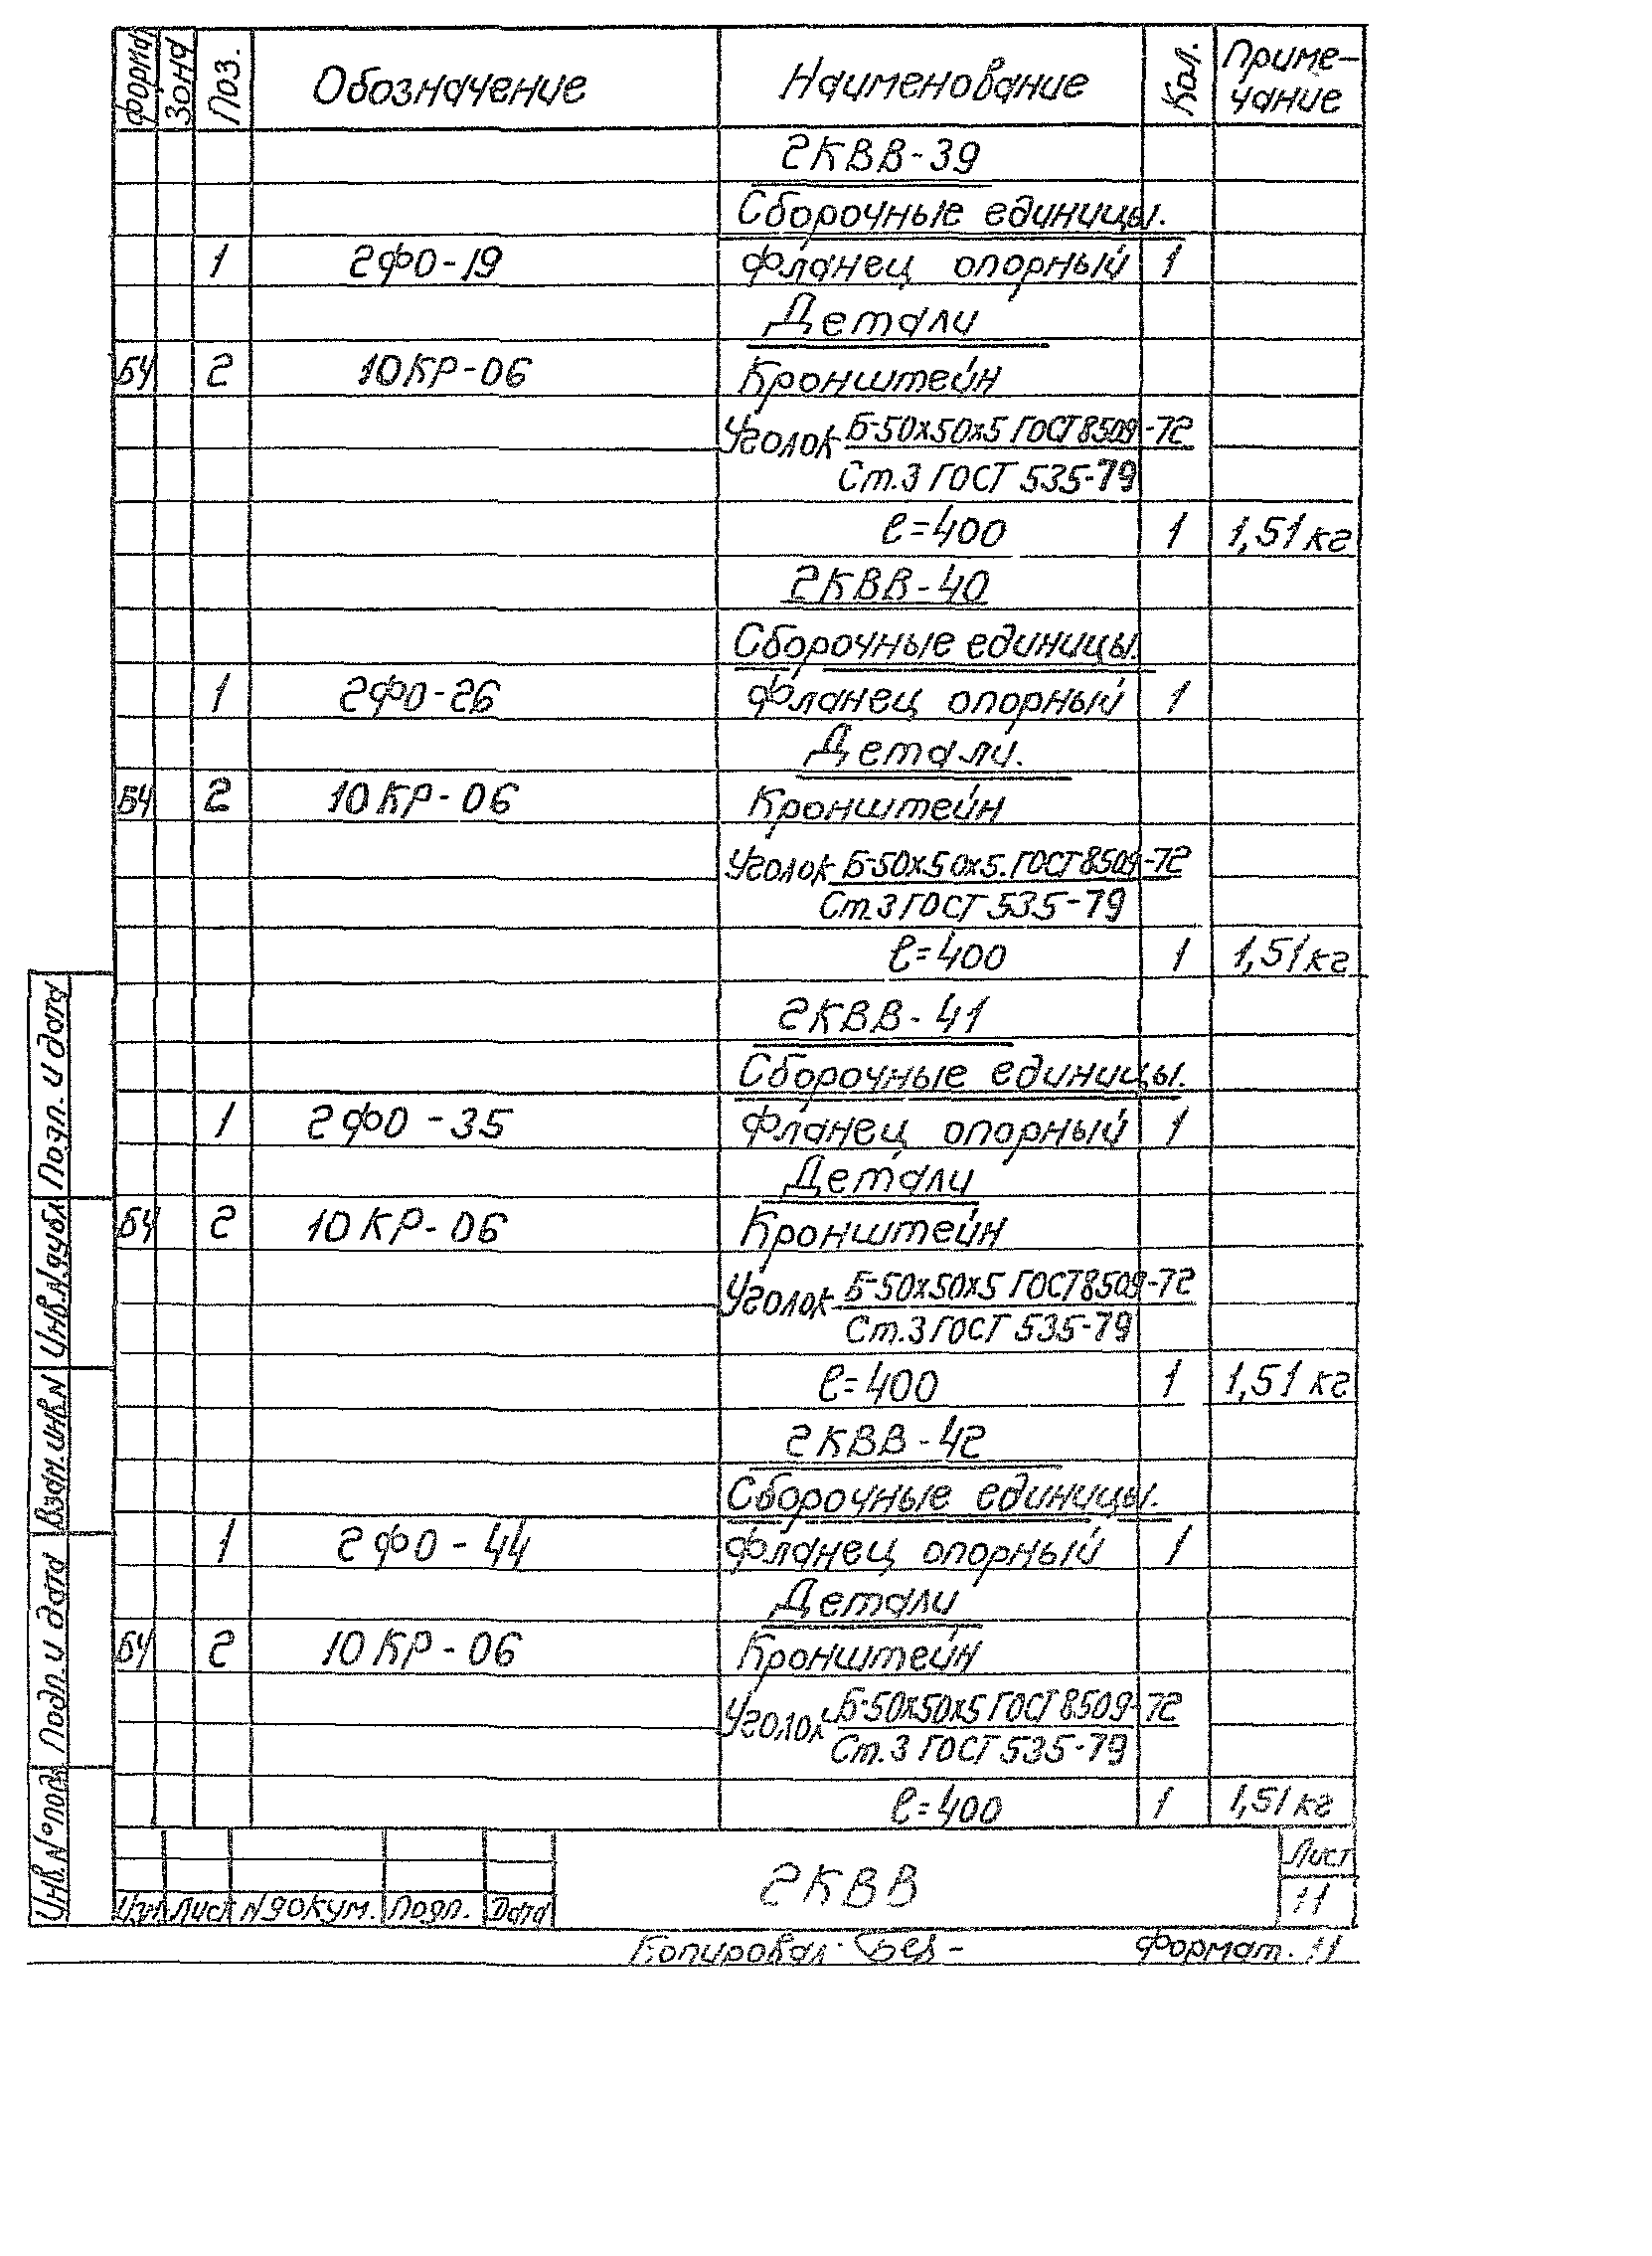 Форма Зона Поз. Обозначение Наименование Кол. Приме-
чание
2КВВ-39
Сборочные единицы.
1 2ФО-19 Фланец опорный 1
Детали
БЧ 2 10КР-06 Кронштейн
Уголок Б-50х50х5 ГОСТ 8509-72
Ст.3 ГОСТ 535-79
ℓ=400 1 1,51кг
2КВВ-40
Сборочные единицы.
1 2ФО-26 Фланец опорный 1
Детали.
БЧ 2 10КР-06 Кронштейн
Уголок Б-50х50х5. ГОСТ 8509-72
Ст.3 ГОСТ 535-79
ℓ=400 1 1,51кг
2КВВ-41
Сборочные единицы.
1 2ФО-35 Фланец опорный 1
Детали
БЧ 2 10КР-06 Кронштейн
Уголок Б-50х50х5 ГОСТ 8509-72
Ст.3 ГОСТ 535-79
ℓ=400 1 1,51 кг
2КВВ-42
Сборочные единицы.
1 2ФО-44 Фланец опорный 1
Детали
БЧ 2 10КР-06 Кронштейн
Уголок Б-50х50х5 ГОСТ 8509-72
Ст.3 ГОСТ 535-79
ℓ=400 1 1,51 кг
Подп. и дата
Инв.N дубл
Взам.инв.N
Подп. и дата
Инв. N° подл
2КВВ
Лист
11
Изм Лист N докум. Подп. Дата
Копировал: Формат. 11